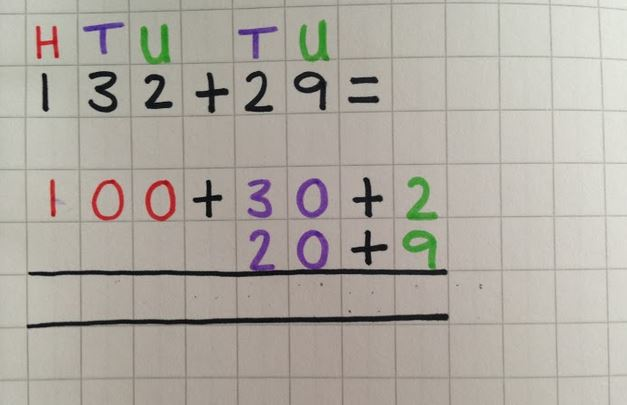 H T U T U
132+29=
100+30+2
20+9